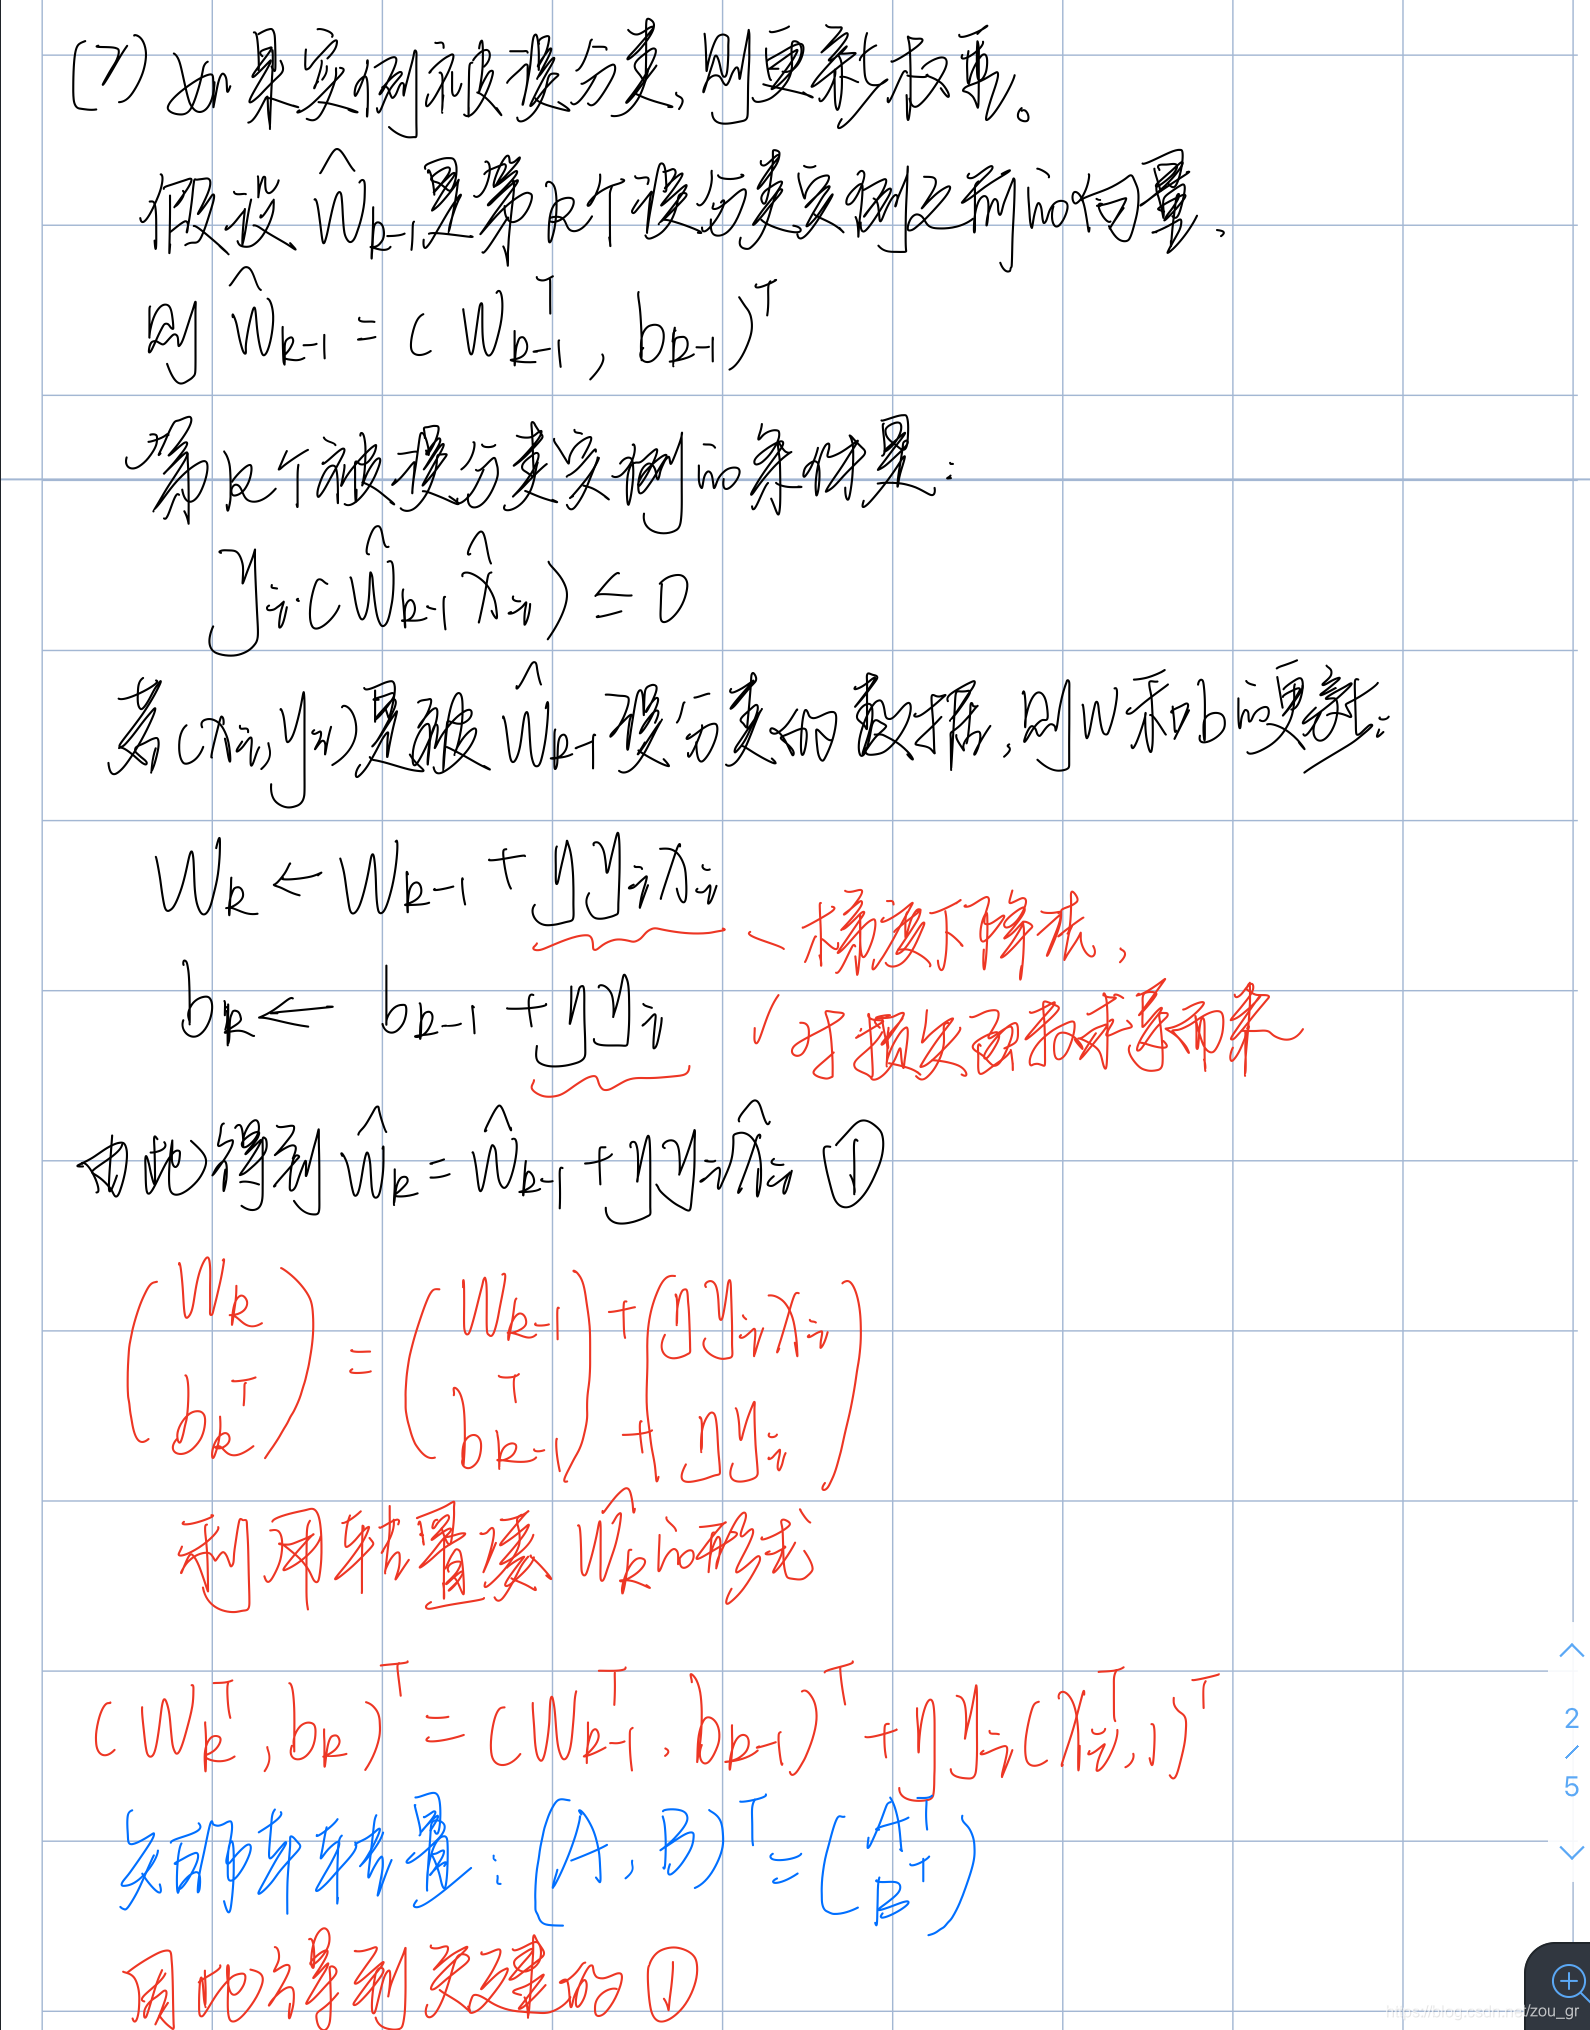 (2) 如果实例被误分类,则更新权重。
假设 ŵₖ₋₁是第k个误分类实例之前的向量,
则 ŵₖ₋₁ = (wₖ₋₁ᵀ, bₖ₋₁)ᵀ
第k个被误分类实例的条件是:
yᵢ·(ŵₖ₋₁x̂ᵢ) ≤ 0
若(xᵢ,yᵢ)是被ŵₖ₋₁误分类的数据,则w和b的更新:
wₖ ← wₖ₋₁ + ηyᵢxᵢ
梯度下降法,
bₖ ← bₖ₋₁ + ηyᵢ
对损失函数求导而来
由此得到 ŵₖ = ŵₖ₋₁ + ηyᵢx̂ᵢ ①
(wₖ) = (wₖ₋₁) + (ηyᵢxᵢ)
(bₖᵀ) (bₖ₋₁ᵀ) + (ηyᵢ)
利用转置凑 ŵₖ的形式
(wₖᵀ, bₖ)ᵀ = (wₖ₋₁ᵀ, bₖ₋₁)ᵀ + ηyᵢ(xᵢᵀ, 1)ᵀ
矩阵转置: (A, B)ᵀ = (Aᵀ
Bᵀ)
因此得到关键的 ①
2
/
5
https://blog.csdn.net/zou_gr